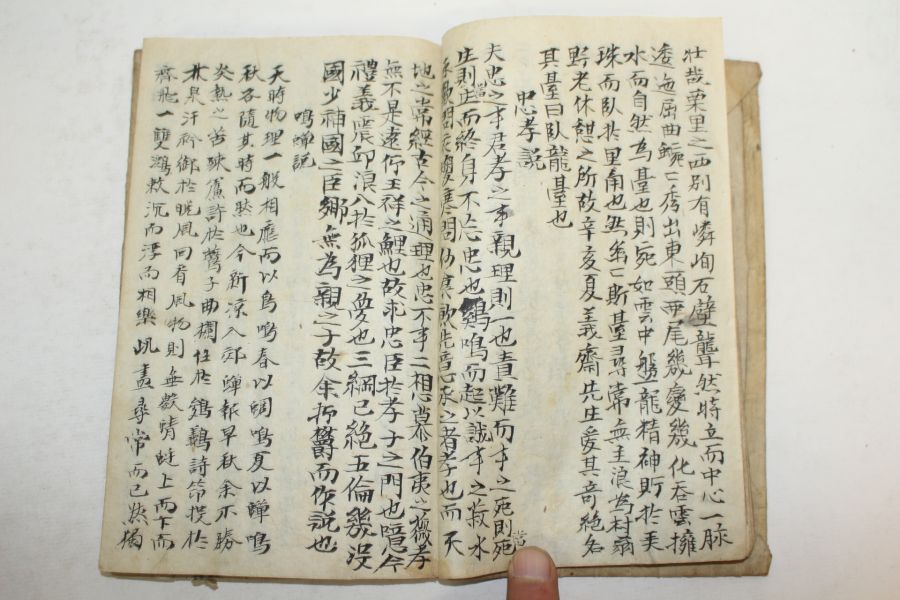 壮哉栗里之西別有嶙峋石壁聳然特立而中心一脉
逶迤屈曲蜿亡秀出東頭西尾幾變幾化吞雲擁
水而自然為臺也則宛如雲中盤龍精神貯於
珠而臥於里角也然斯臺尋常無主浪為村翁
野老休憩之所故辛亥夏義齋先生愛其奇絕名
其臺曰臥龍臺也
忠孝説
夫忠之事君孝之事親理則一也責難而事之死則死
生則生而終身不忘忠也鷄鳴而起以誠事之菽水
承歡問
先意承之者孝也而天
地之常經古今之通理也忠不事二想慕伯夷之
孝
無不是遠行王祥之鯉也故求忠臣於孝子之門也噫今
禮義震卬浪八於狐狸之變也三綱已絕五倫幾沒
國少神國之臣鄉無為親之子故余抑欝而作説也
鳴蟬説
天時物理一般相應而以鳥鳴春以蜩鳴夏以蟬鳴
秋各隨其時而然也今新凉入郊蟬報早秋余不勝
炎熱之苦
於鷰子曲欄任於鷄鷸詩節投於
泉汗
御於晩風回看風物則無數蜻蜓上而下而
齊飛一雙鴻
沉而浮而相樂此盡尋常而已然獨